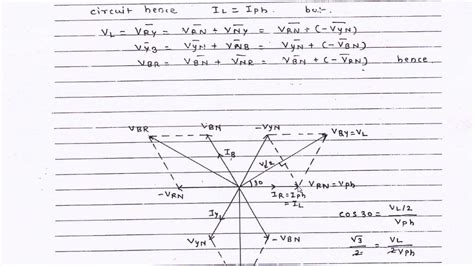 circuit hence IL = Iph. but:-
VL = V̅R̅Y̅ = V̅R̅N̅ + V̅N̅Y̅ = V̅R̅N̅ + (-V̅Y̅N̅)
V̅Y̅B̅ = V̅Y̅N̅ + V̅N̅B̅ = V̅Y̅N̅ + (-V̅B̅N̅)
VBR = V̅B̅N̅ + V̅N̅R̅ = V̅B̅N̅ + (-V̅R̅N̅) hence
VBR VBN -VYN VBY=VL
IB VL/2
30
-VRN IR=Iph VRN = Vph
= IL
IY cos30 = VL/2 / Vph
VYN -VBN
√3/2 = VL/2Vph